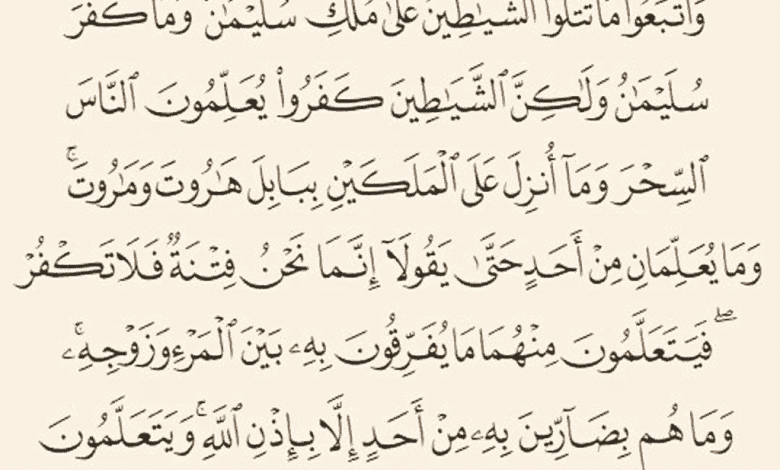 وَٱتَّبَعُوا۟ مَا تَتْلُوا۟ ٱلشَّيَٰطِينُ عَلَىٰ مُلْكِ سُلَيْمَٰنَ وَمَا كَفَرَ
سُلَيْمَٰنُ وَلَٰكِنَّ ٱلشَّيَٰطِينَ كَفَرُوا۟ يُعَلِّمُونَ ٱلنَّاسَ
ٱلسِّحْرَ وَمَآ أُنزِلَ عَلَى ٱلْمَلَكَيْنِ بِبَابِلَ هَٰرُوتَ وَمَٰرُوتَ ۚ
وَمَا يُعَلِّمَانِ مِنْ أَحَدٍ حَتَّىٰ يَقُولَآ إِنَّمَا نَحْنُ فِتْنَةٌ فَلَا تَكْفُرْ
ۖ فَيَتَعَلَّمُونَ مِنْهُمَا مَا يُفَرِّقُونَ بِهِۦ بَيْنَ ٱلْمَرْءِ وَزَوْجِهِۦ ۚ
وَمَا هُم بِضَآرِّينَ بِهِۦ مِنْ أَحَدٍ إِلَّا بِإِذْنِ ٱللَّهِ ۚ وَيَتَعَلَّمُونَ